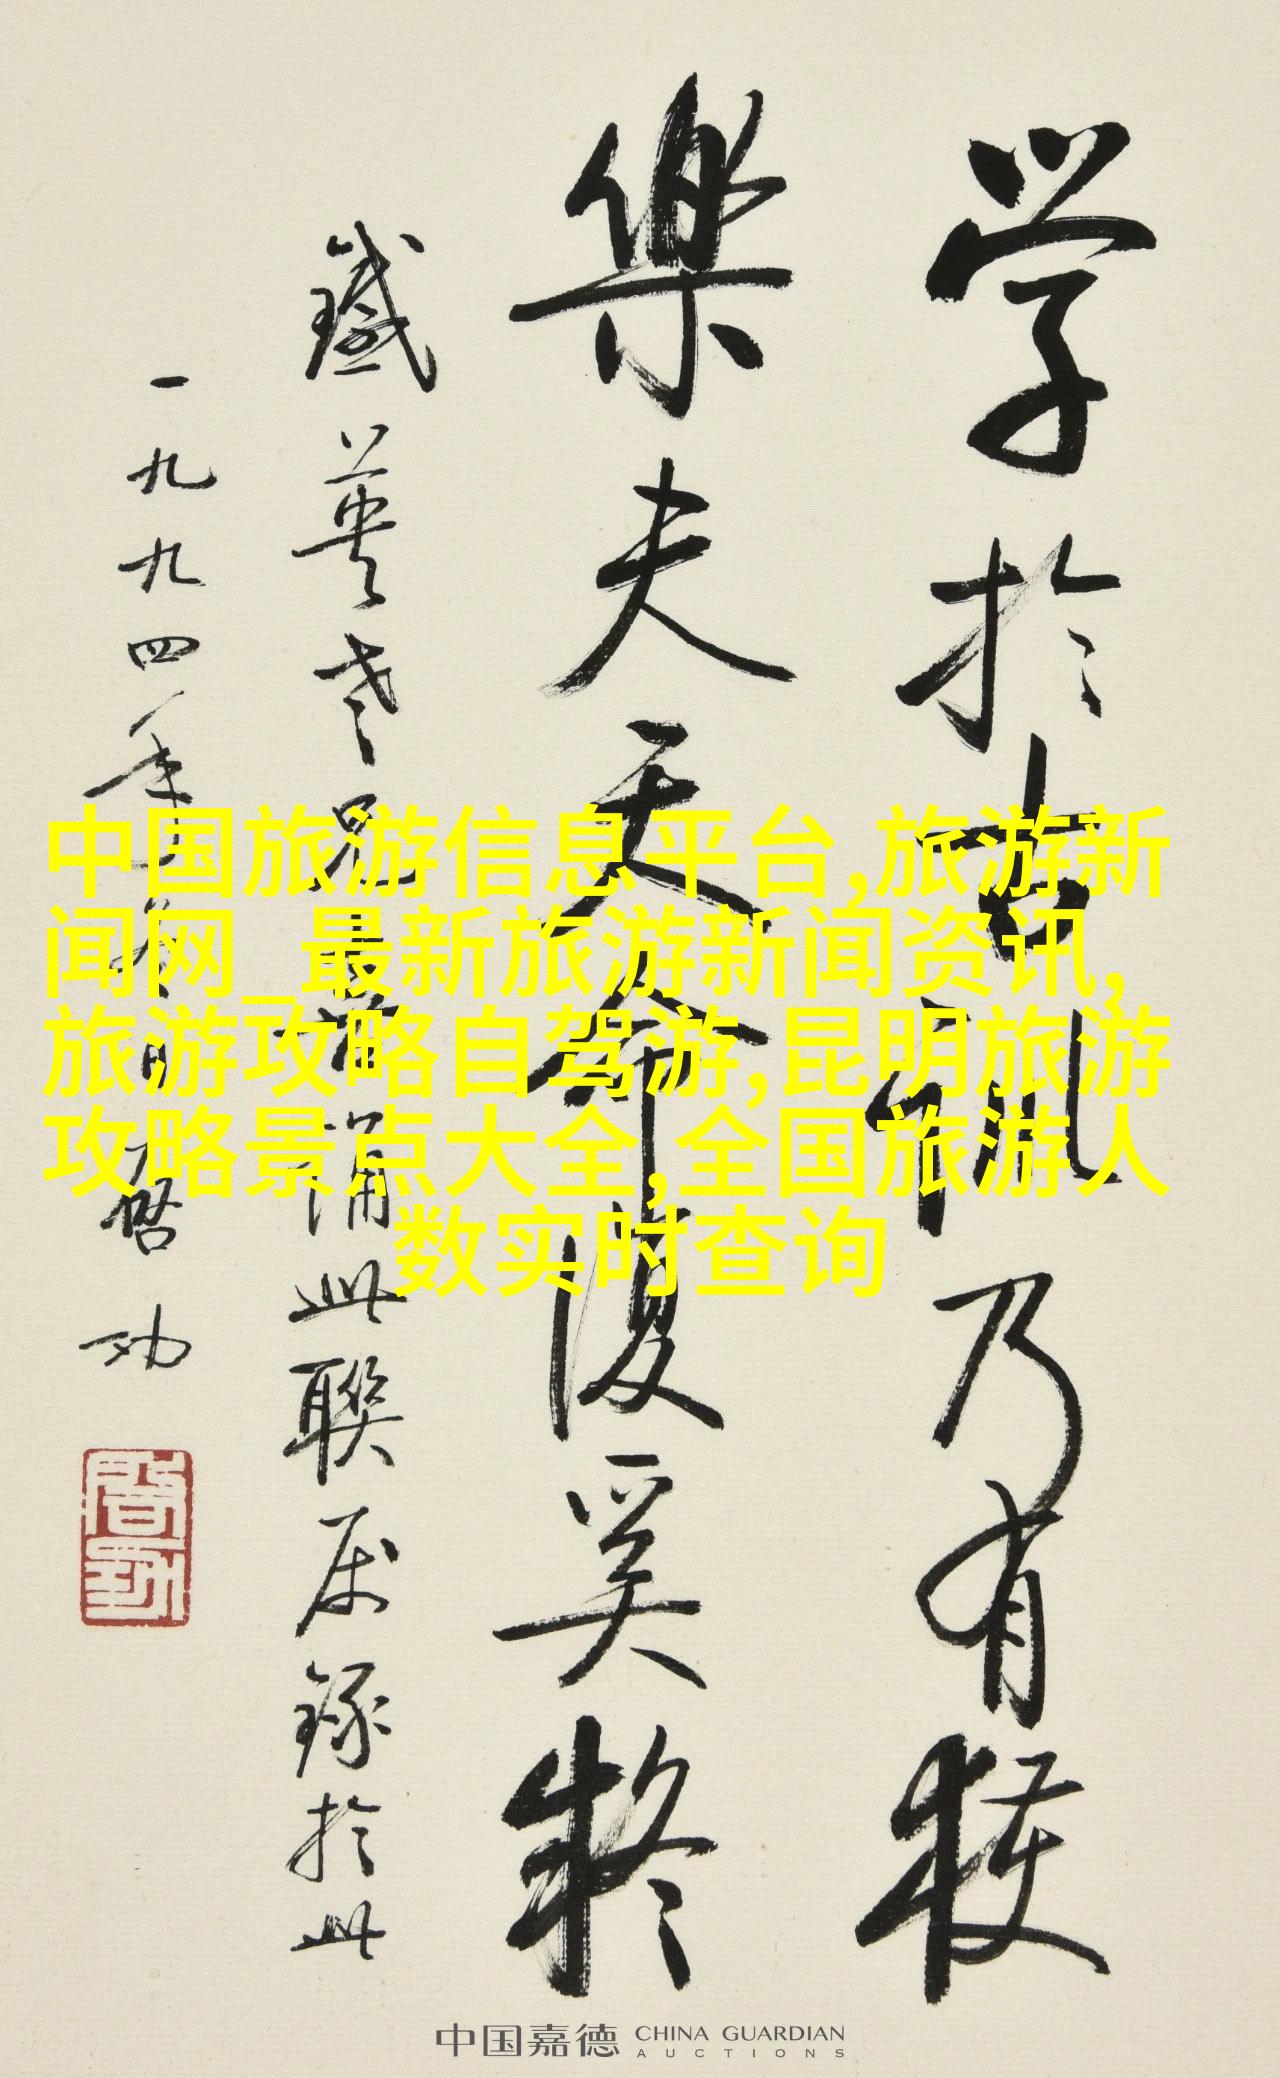 学於古训乃有获
樂夫天命復奚疑
鐵英老兄嘗誦此聯属録於此
一九九四年
启功
中国旅游信息平台,旅游新
闻网_最新旅游新闻资讯,
旅游攻略自驾游,昆明旅游
攻略景点大全,全国旅游人
数实时查询
中国嘉德 CHINA GUARDIAN
AUCTIONS